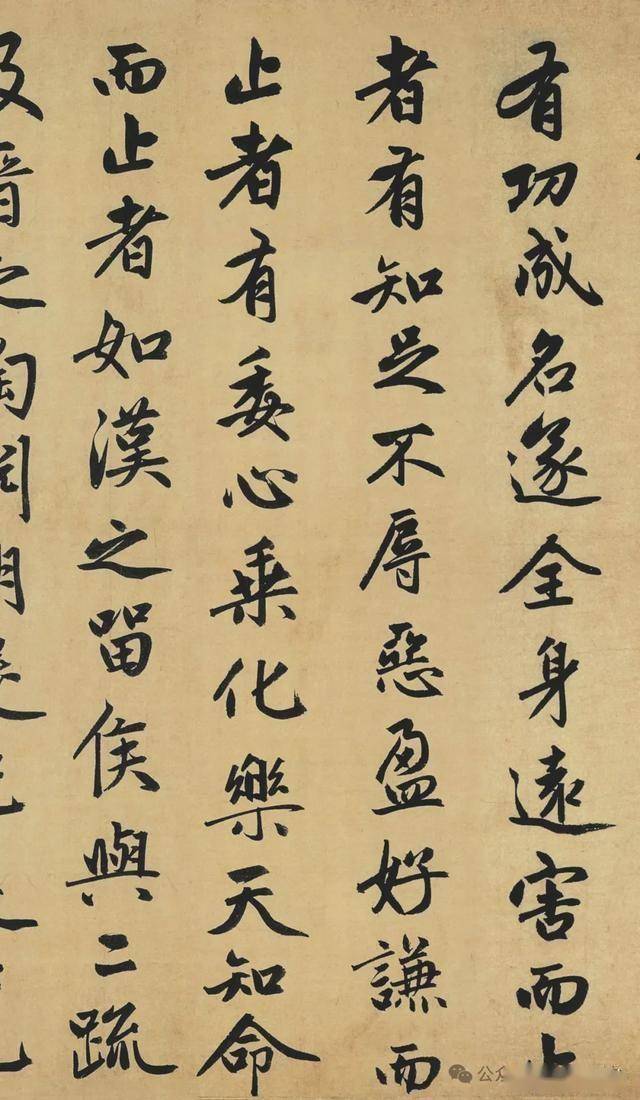 有功成名遂全身遠害而止
者有知足不辱惡盈好謙而
止者有委心乘化樂天知命
而止者如漢之留侯與二疏
及晉之陶淵明
公众